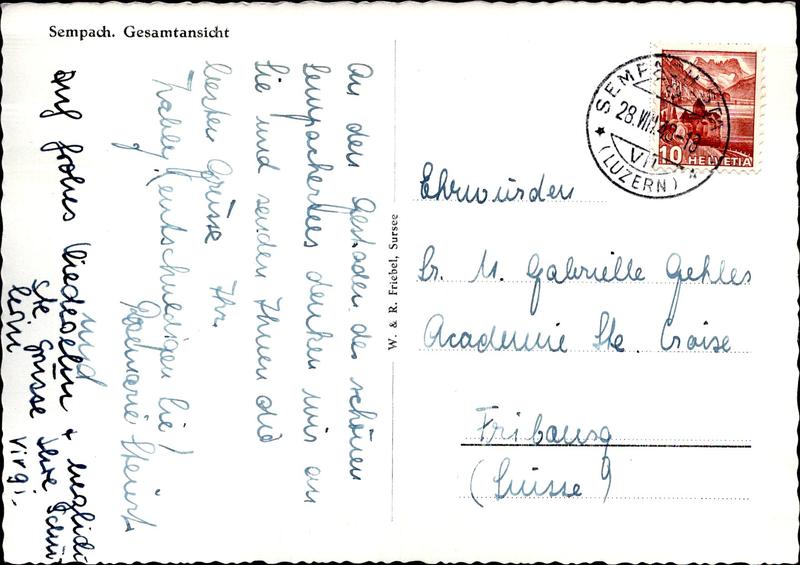 Sempach. Gesamtansicht
An den Gestaden des schönen
Sempachersees denken wir an
Sie und senden Ihnen die
besten Grüsse Ihr
(entschuldigen Sie!
und Rosmarie
Auf frohes Wiedersehn + herzlich
ste Grüsse Ihre
Virgi-
W. & R. Friebel, Sursee
SEMPACH
28.VIII
(LUZERN)
10 HELVETIA
Ehrwürden
Sr. M. Gabrielle Gehles
Academie Ste. Croise
Fribourg
(Suisse)